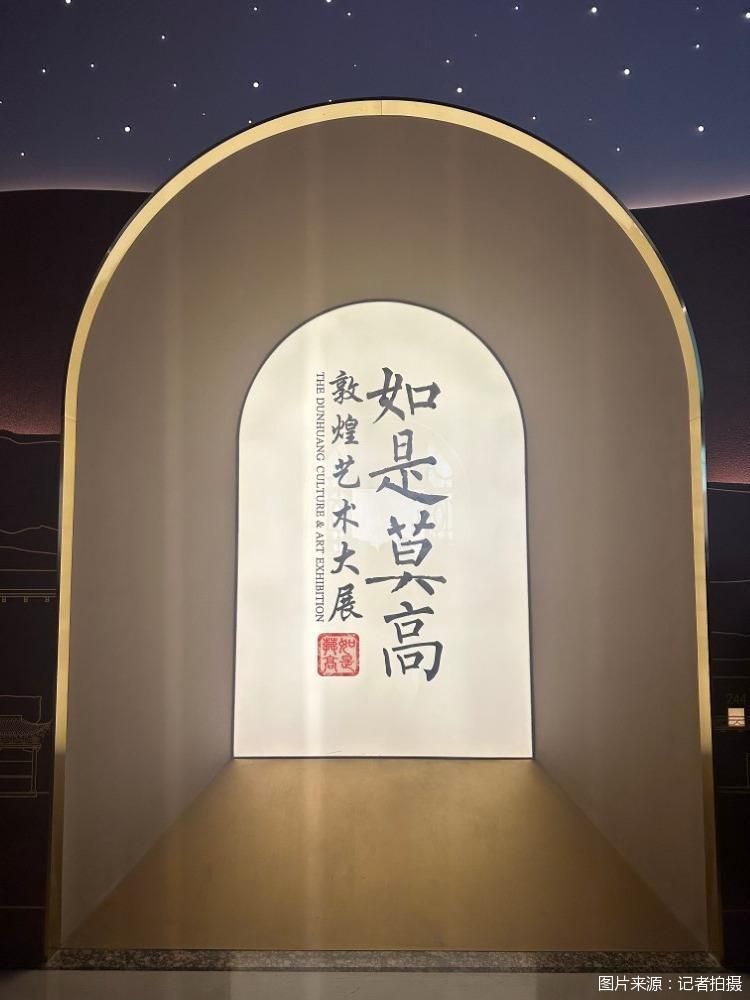 如是莫高
敦煌艺术大展
THE DUNHUANG CULTURE & ART EXHIBITION
如是
莫高
图片来源：记者拍摄